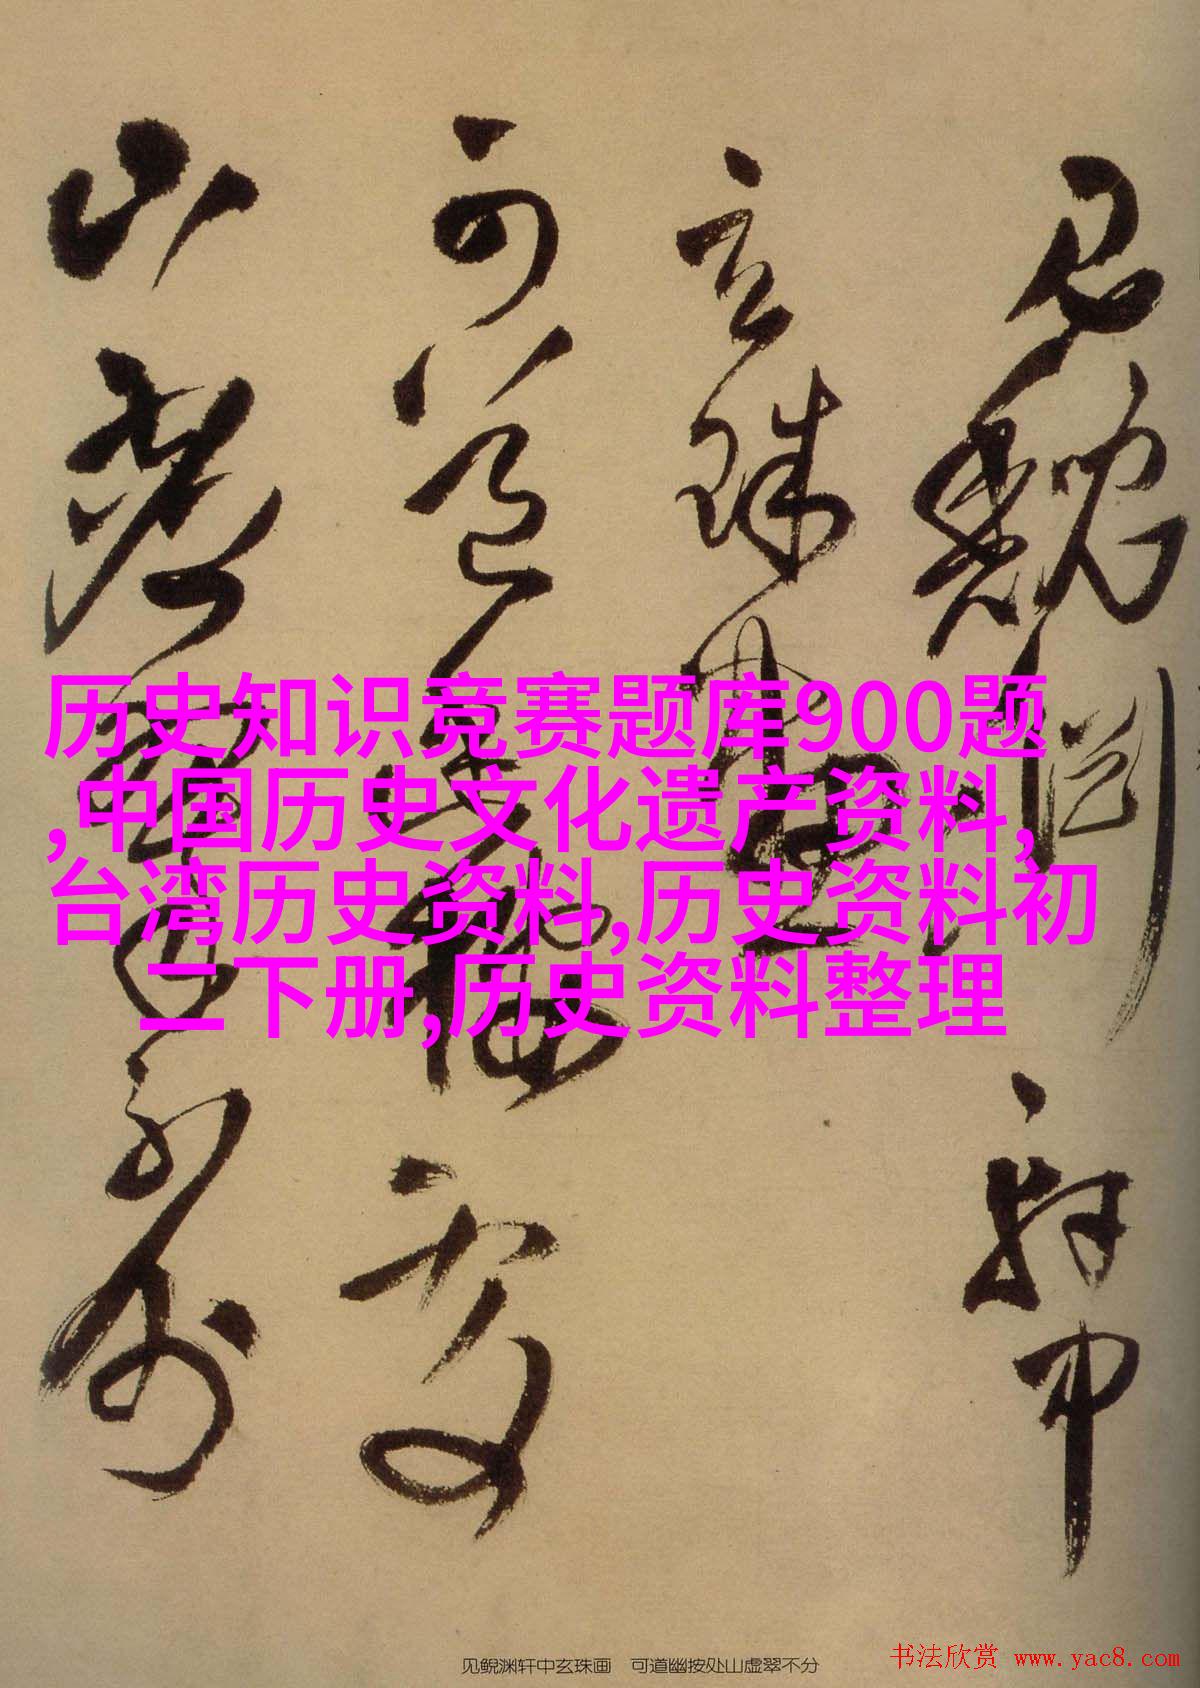 历史知识竞赛题库900题
,中国历史文化遗产资料,
台湾历史资料,历史资料初
二下册,历史资料整理
见鲵渊轩中
玄珠画
可道
山虚翠不分
见鲵渊轩中玄珠画 可道幽按处山虚翠不分
书法欣赏 www.yac8.com